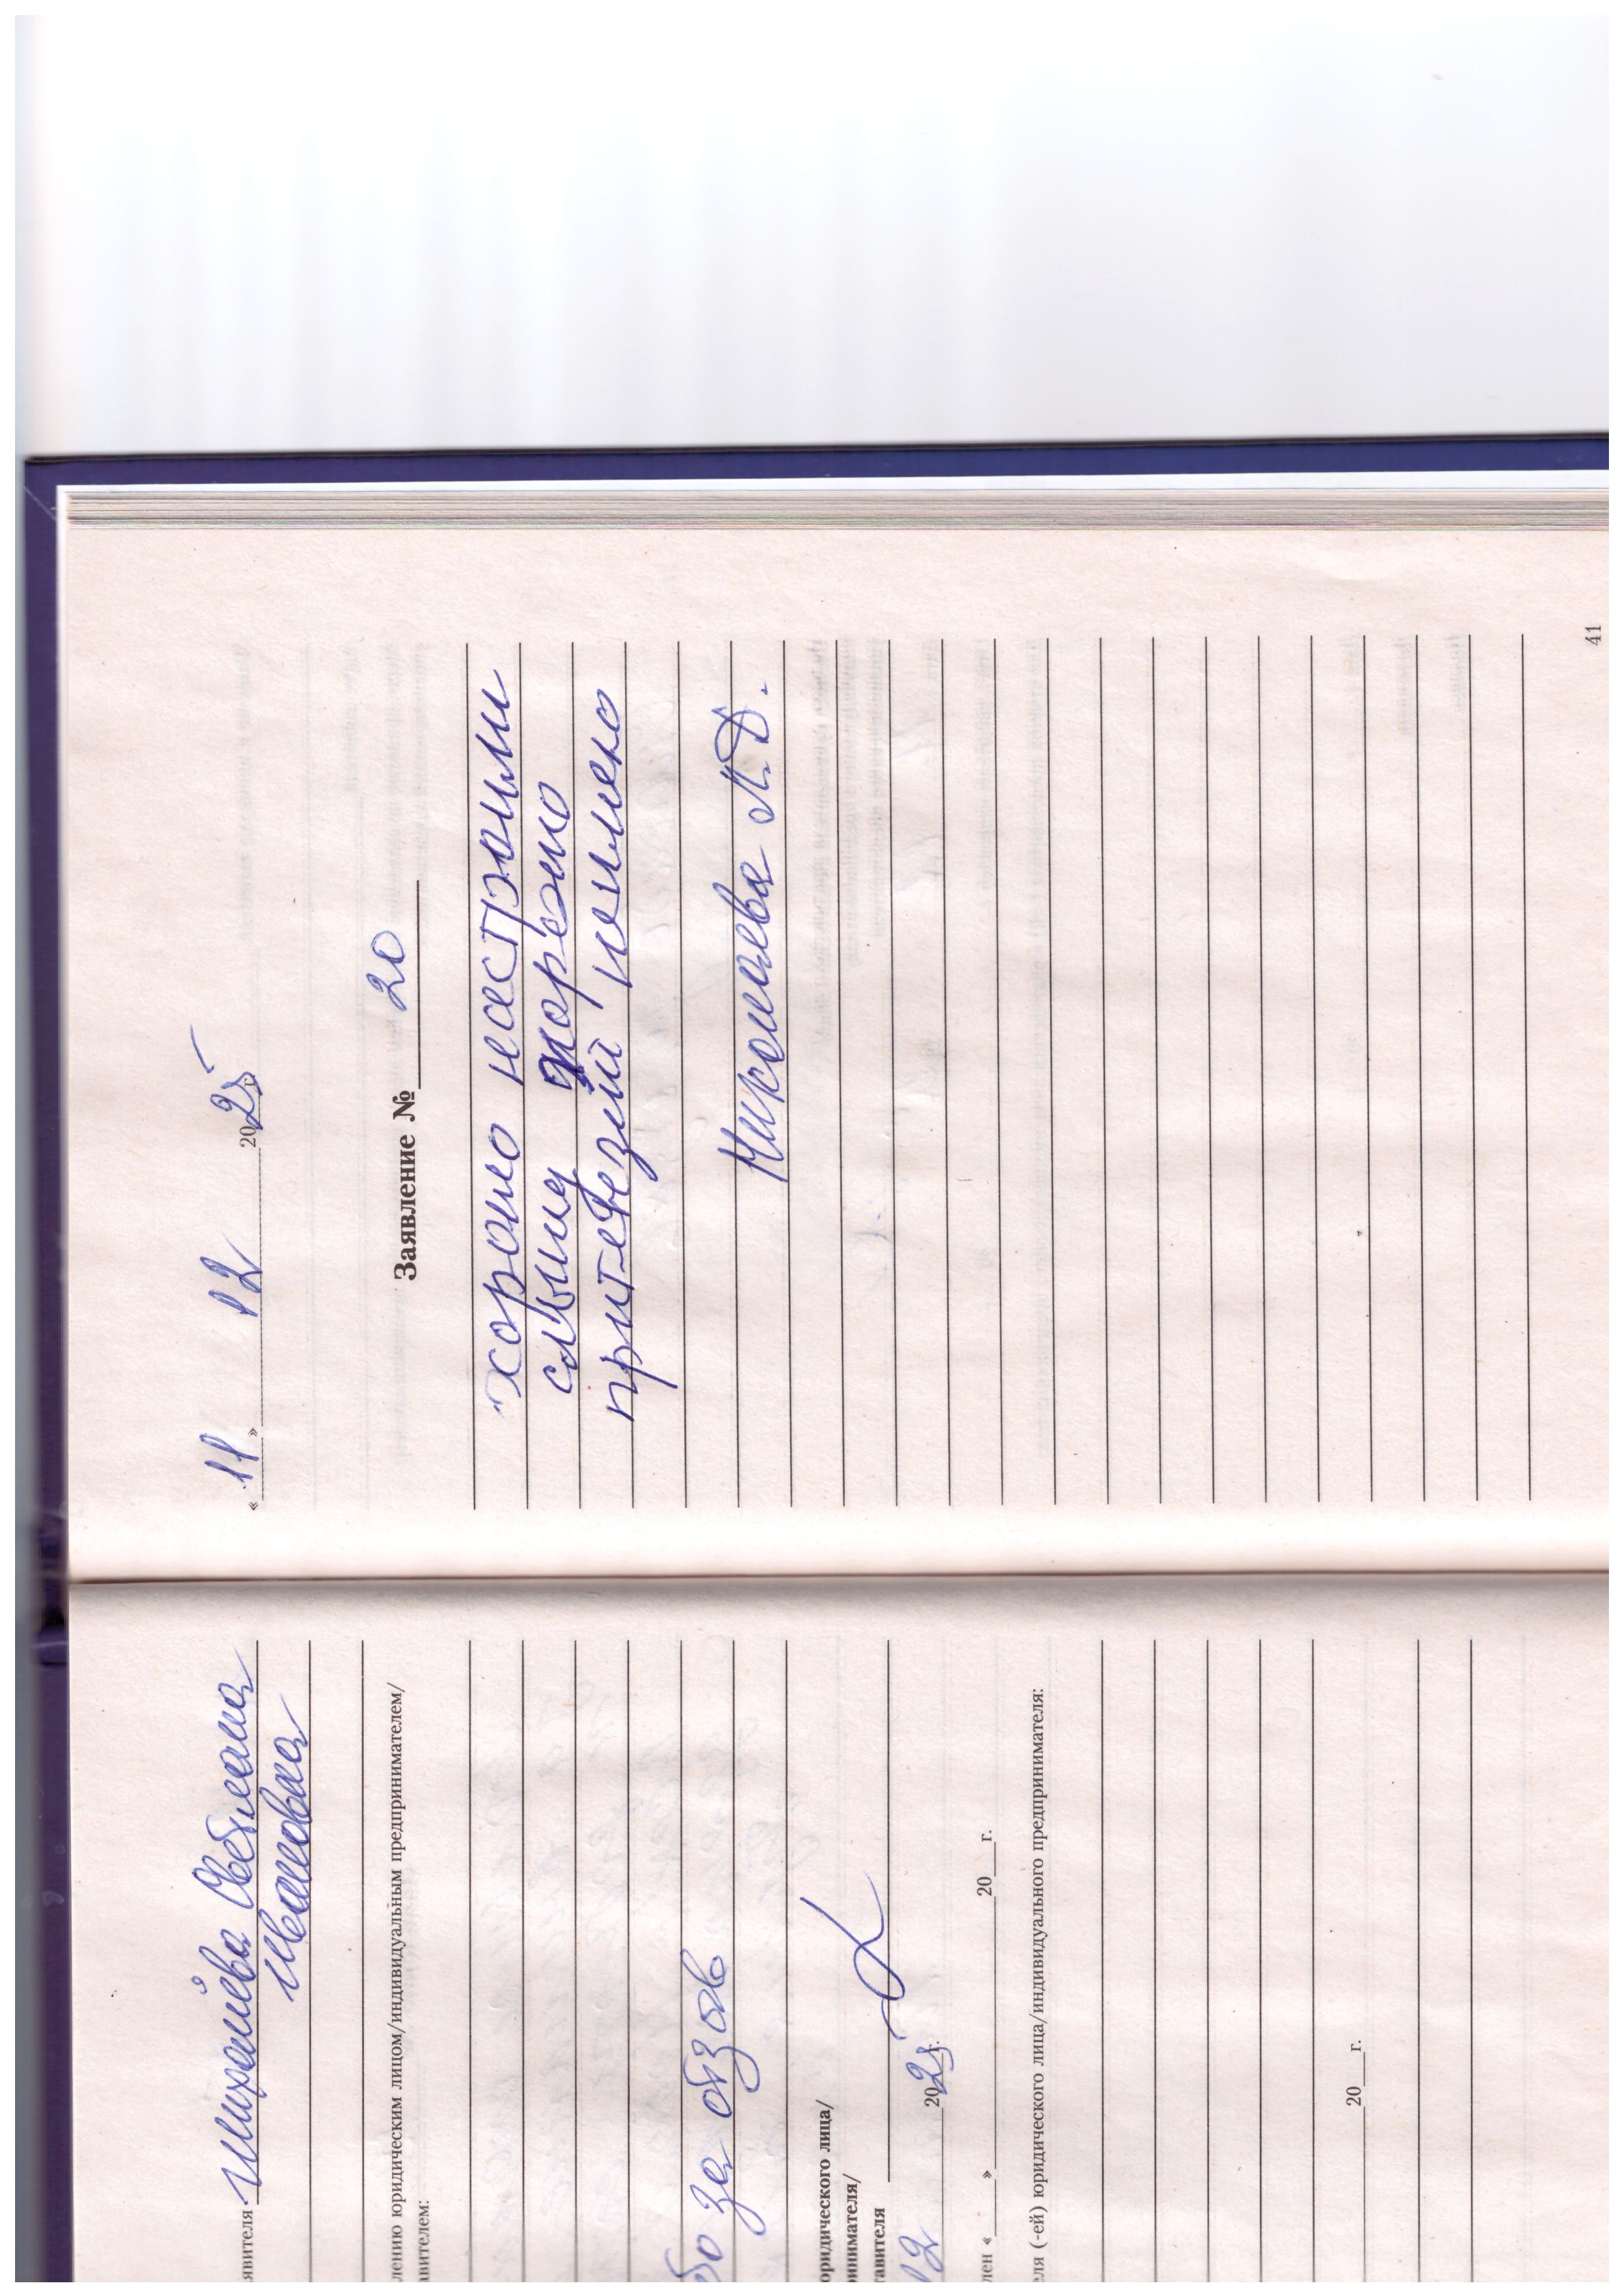 явителя Михалёва Светлана
Ивановна
лению юридическим лицом/индивидуальным предпринимателем/
авителем:
бо за отзов
оридического лица/
ринимателя/
тавителя
12 2025 г.
лен « » 20 г.
еля (-ей) юридического лица/индивидуального предпринимателя:
20 г.
« 11 » 12 2025 г.
Заявление № 20
хорошо настроили
слышу хорошо
притезий нимею
Миколаева Л.Д.
41